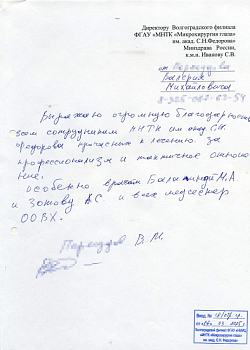 Директору Волгоградского филиала
ФГАУ «МНТК «Микрохирургия глаза»
им. акад. С.Н.Федорова»
Минздрава России,
к.м.н. Иванову С.В.
от
Валерия
Михайловича
Выражаю огромную благодарность
всем сотрудникам МНТК им. акад. С.Н.
Федорова причастных к лечению. за
профессионализм и тактичное отноше
ние.
особенно врачам М.А
и Зотову АС и всех медсестер
ООВХ.
В. М.
Вход. №
Волгоградский филиал
«МНТК «Микрохирургия глаза»
им. акад. С.Н. Федорова»